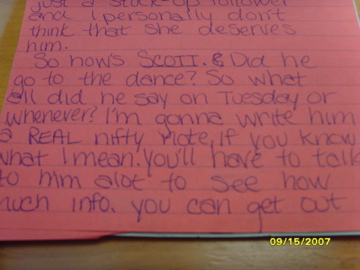 just a stuck-up follower
and I personally don't
think that she deserves
him.
So how's SCOTT. & Did he
go to the dance? So what
all did he say on Tuesday or
whenever? I'm gonna write him
a REAL nifty note, if you know
what I mean. You'll have to talk
to him alot to see how
much info. you can get out
09/15/2007